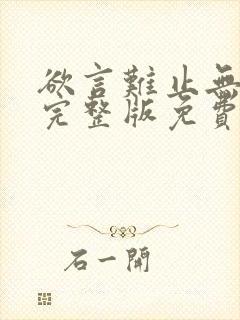 欲言難止無
完整版免費
石一開